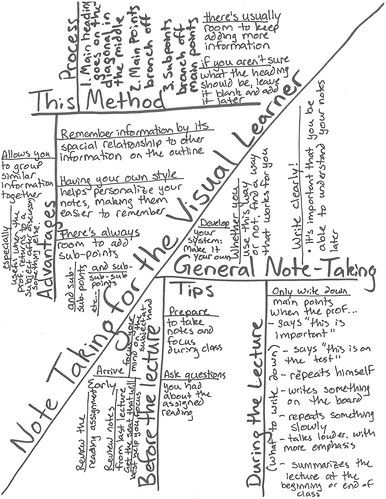 Note Taking for the Visual Learner
This Method
Process
1. Main heading
goes on the
diagonal in
the middle
2. Main Points
branch off
3. Subpoints
branch off
main points
there's usually
room to keep
adding more
information
if you aren't sure
what the heading
should be, leave
it blank and add
it later
Advantages
Remember information by its
spacial relationship to other
information on the outline
Having your own style
helps personalize your
notes, making them
easier to remember
There's always
room to add
sub-points
and sub-
sub-
points
and sub-
sub-sub-
points
etc...
Allows you
to group
similar
information
together
especially
useful when the
prof returns to a
subject after discussing
something else.
General Note-Taking
Tips
Develop
your
system:
make it
your own
Whether you
use this way
or not, find a way
that works for you
Write clearly!
• it's important that you be
able to understand your notes
later
Before the lecture
Prepare
to take
notes and
focus
during class
Ask questions
you had
about the
assigned
reading
Arrive
Early
Get the seat that will
best help you focus
Review the
reading assignment
Review notes
from last lecture
mind on the
subject at
hand
During the Lecture
(what to write down)
Only write down
main points
when the prof...
- says "this is
important"
- says "this is on
the test"
- repeats himself
- writes something
on the board
- repeats something
slowly
- talks louder, with
more emphasis
- summarizes the
lecture at the
beginning or end of
class